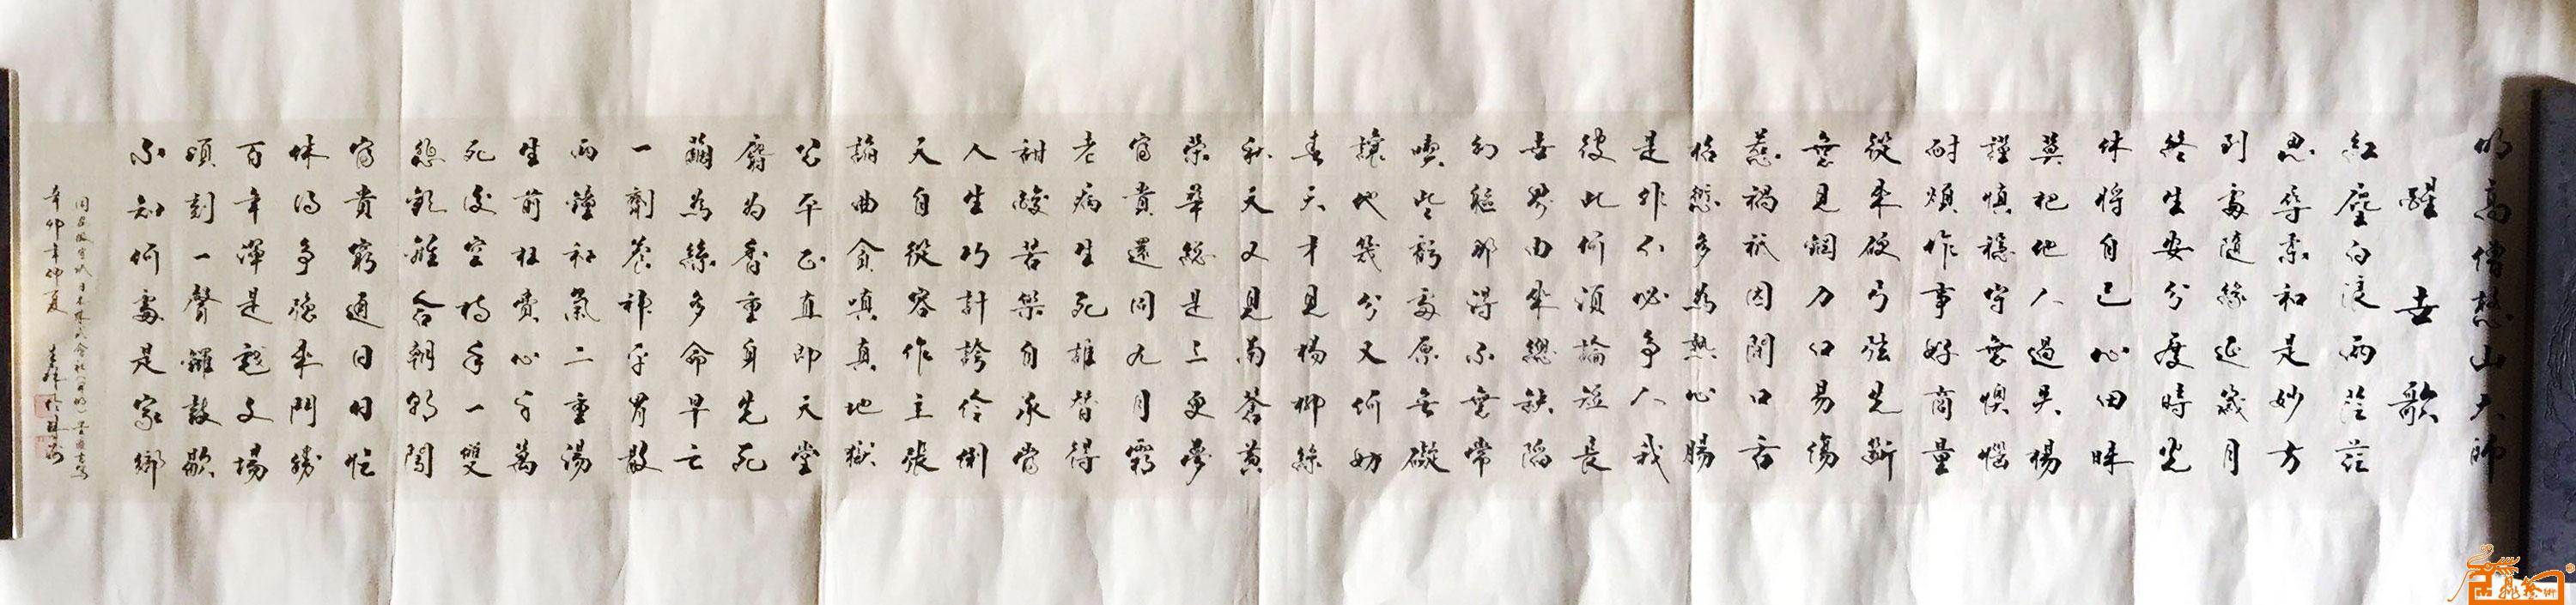 明高僧憨山大師
醒世歌
紅塵白浪兩茫茫
忍辱柔和是妙方
到處隨緣延歲月
終生安分度時光
休將自己心田昧
莫把他人過失揚
謹慎穩守無懊惱
耐煩作事好商量
從來硬弓弦先斷
無見鋼刀口易傷
惹禍祇因閒口舌
招愆多為熱心腸
是非不必爭人我
彼此何須論短長
世界由來總缺陷
幻軀那得不無常
喫些虧處原無礙
讓他幾分又何妨
春天才見楊柳絲
秋天又見菊蒼黃
榮華總是三更夢
富貴還同九月霜
老病生死誰替得
甜酸苦樂自承當
人生巧計誇伶俐
天自從容作主張
諂曲貪嗔真地獄
公平正直即天堂
麝为香重身先死
繭為絲多命早亡
一劑養神平胃散
兩鐘和氣二重湯
生前枉費心千萬
死後空持手一雙
悲歡離合朝朝鬧
富貴窮通日日忙
休得爭強來鬥勝
百年渾是戲文場
頃刻一聲鑼鼓歇
不知何處是家鄉
辛卯年仲夏